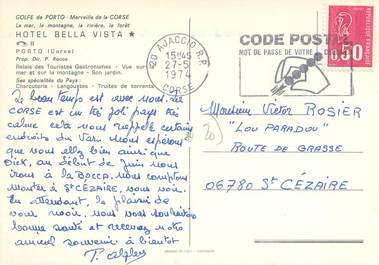 GOLFE de PORTO - Merveille de la CORSE
La mer, la montagne, la rivière, la forêt
HOTEL BELLA VISTA ★
PORTO (Corse)
Prop. Dir. P. Rocca
Relais des Touristes Gastronomes - Vue sur
mer et sur la montagne - Son jardin.
Ses spécialités du Pays :
Charcuterie - Langoustes - Truites de torrents
20 AJACCIO R.P.
15H45
27-5
1974
CORSE
CODE POSTAL
MOT DE PASSE DE VOTRE
0,50
Le beau temps est avec nous. La
CORSE est un très joli pays très
calme cela nous rappelle certains
endroits du Var. Nous espérons
que vous allez bien ainsi que
Dick, au début de Juin nous
irons à la BOCCA, nous comptons
monter à St CÉZAIRE, vous voir.
En attendant, le plaisir de
vous revoir, nous vous souhaitons
bonne santé et recevez notre
amical souvenir à bientôt
Monsieur Victor ROSIER
"LOU PARADOU"
ROUTE DE GRASSE
06780 St CÉZAIRE
20